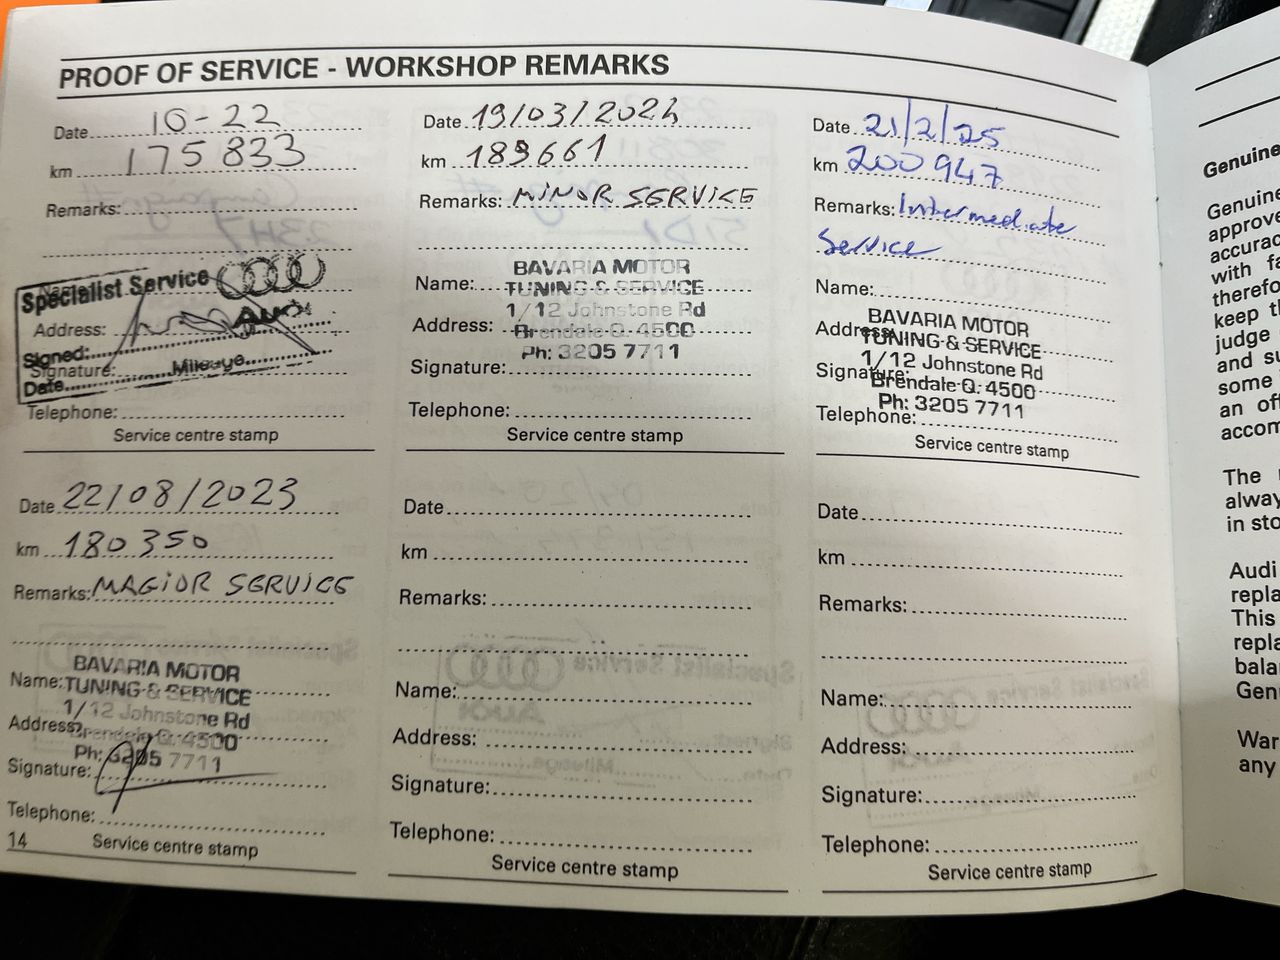 PROOF OF SERVICE - WORKSHOP REMARKS
Date 10-22
km 175 833
Remarks:
Specialist Service
Audi
Address:
Signed:
Signature:
Mileage
Date
Telephone:
Service centre stamp
Date 22/08/2023
km 180 350
Remarks: MAGIOR SERVICE
BAVARIA MOTOR
Name: TUNING & SERVICE
1/12 Johnstone Rd
Address: Brendale Q. 4500
Ph: 3205 7711
Signature:
Telephone:
14
Service centre stamp
Date 19/03/2024
km 189661
Remarks: MINOR SERVICE
BAVARIA MOTOR
Name: TUNING & SERVICE
1/12 Johnstone Rd
Address: Brendale Q. 4500
Ph: 3205 7711
Signature:
Telephone:
Service centre stamp
Date
km
Remarks:
Name:
Address:
Signature:
Telephone:
Service centre stamp
Date 21/2/25
km 200 947
Remarks: Intermediate
Service
Name:
BAVARIA MOTOR
Address: TUNING & SERVICE
1/12 Johnstone Rd
Signature: Brendale Q. 4500
Ph: 3205 7711
Telephone:
Service centre stamp
Date
km
Remarks:
Name:
Address:
Signature:
Telephone:
Service centre stamp
Genuine
Genuine
approve
accurac
with fa
therefo
keep th
judge
and su
some
an off
accom
The
alway
in sto
Audi
repla
This
repla
balan
Genu
War
any